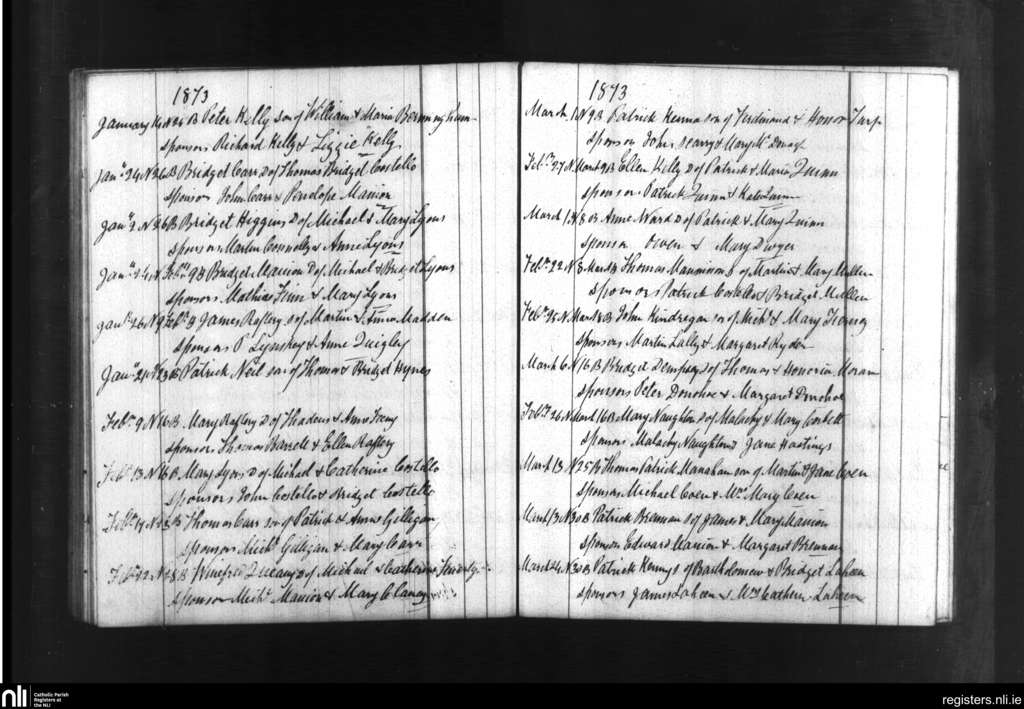 1873
January 14 N 25 B Peter Kelly son of William & Maria Bermingham
sponsors Richard Kelly & Lizzie Kelly
Jany 24 N 26 B Bridget Carr D of Thomas Bridget Costello
Sponsors John Carr & Penelope Manion
Jany N 26 B Bridget Higgins D of Michael & Mary Lyons
sponsors Martin Connolly & Anne Lyons
Jany 24 N Feby 9 B Bridget Manion D of Michael & Bridget Lyons
sponsors Mathias Finn & Mary Lyons
Jany 26 N 9 Feby B James Raftery S of Martin & Madden
sponsors P Lynskey & Anne Quigley
Jany N B Patrick Neil son of Thomas & Bridget Hynes
Feby 9 N 16 B Mary Raftery D of Thadeus & Anne
sponsors Thomas Barrett & Ellen Raftery
Feby 13 N 16 B Mary Lyons D of Micheal & Catherine Costello
sponsors John Costello & Bridget Costello
Feby 17 N B Thomas Carr son of Patrick & Anne Gilligan
sponsors Michl Gilligan & Mary Carr
Feby N B Winefred D of Michael & Catherine
sponsors Michl Manion & Mary Clancy
1873
March 1 N 9 B Patrick son of Ferdinand & Honor
sponsors John & Mary Mc
Feby 27 N March 9 B Ellen Kelly D of Patrick & Maria Quinn
sponsors Patrick Quinn & Kate Quinn
March 1 N 8 B Anne Ward D of Patrick & Mary Quinn
sponsors Owen & Mary Dwyer
Feby 22 N 8 March B Thomas S of Martin & Mary Mullen
sponsors Patrick Costello & Bridget Mullen
Feby 25 N March B John Kindregan son of Michl & Mary
Sponsors Martin Lally & Margaret Ryder
March 6 N 16 B Bridget Dempsey D of Thomas & Honoria Moran
sponsors Peter Donohoe & Margaret Donohoe
Feby 26 N March 16 B Mary Naughton D of Malachy & Mary
sponsors Malachy Naughton & Jane Hastings
March 13 N 25 B Thomas Patrick Manahan son of Martin & Jane Coen
Sponsors Michael Coen & Mrs Mary Coen
March 13 N 30 B Patrick Brennan S of James & Mary Manion
sponsors Edward Manion & Margaret Brennan
March 24 N 30 B Patrick Kenny S of Bartholomew & Bridget Laheen
sponsors James Laheen & Mrs Cathern Laheen
nli
Catholic Parish
Registers at
the NLI
registers.nli.ie